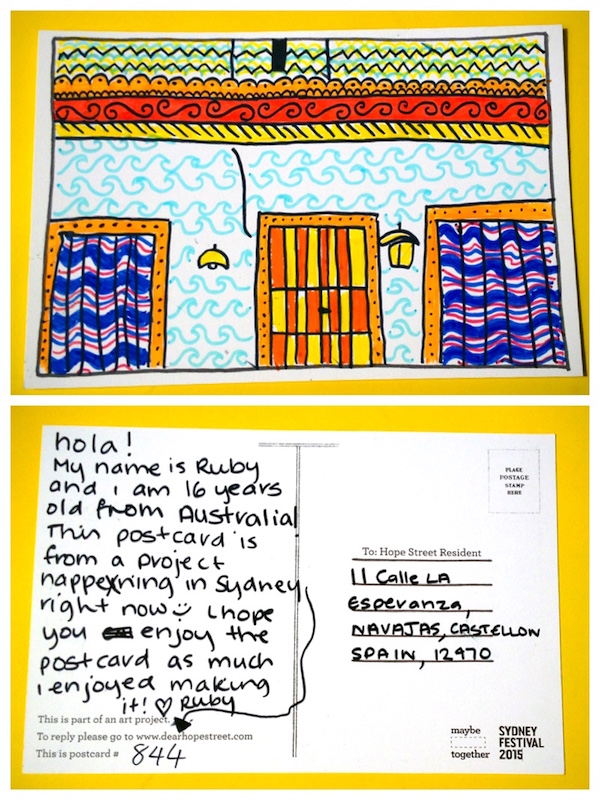 hola!
My name is Ruby
and i am 16 years
old from AUSTRALIA!
This postcard is
from a project
happening in Sydney
right now i hope
you enjoy the
postcard as much
i enjoyed making
it! ♡ Ruby
This is part of an art project.
To reply please go to www.dearhopestreet.com
This is postcard # 844
PLACE
POSTAGE
STAMP
HERE
To: Hope Street Resident
11 Calle LA
Esperanza,
NAVAJAS, CASTELLON
SPAIN, 12970
maybe
together
SYDNEY
FESTIVAL
2015